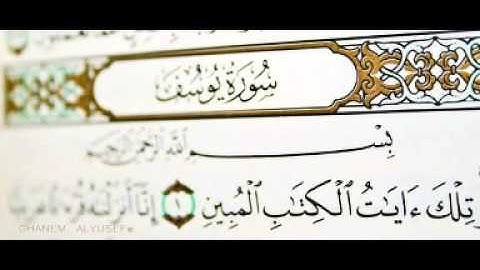 سُورَةُ يُوسُفَ
بِسْمِ اللَّهِ الرَّحْمَٰنِ الرَّحِيمِ
تِلْكَ ءَايَاتُ الْكِتَابِ الْمُبِينِ ١ إِنَّا أَنزَلْنَاهُ
GHANEM. ALYUSEF